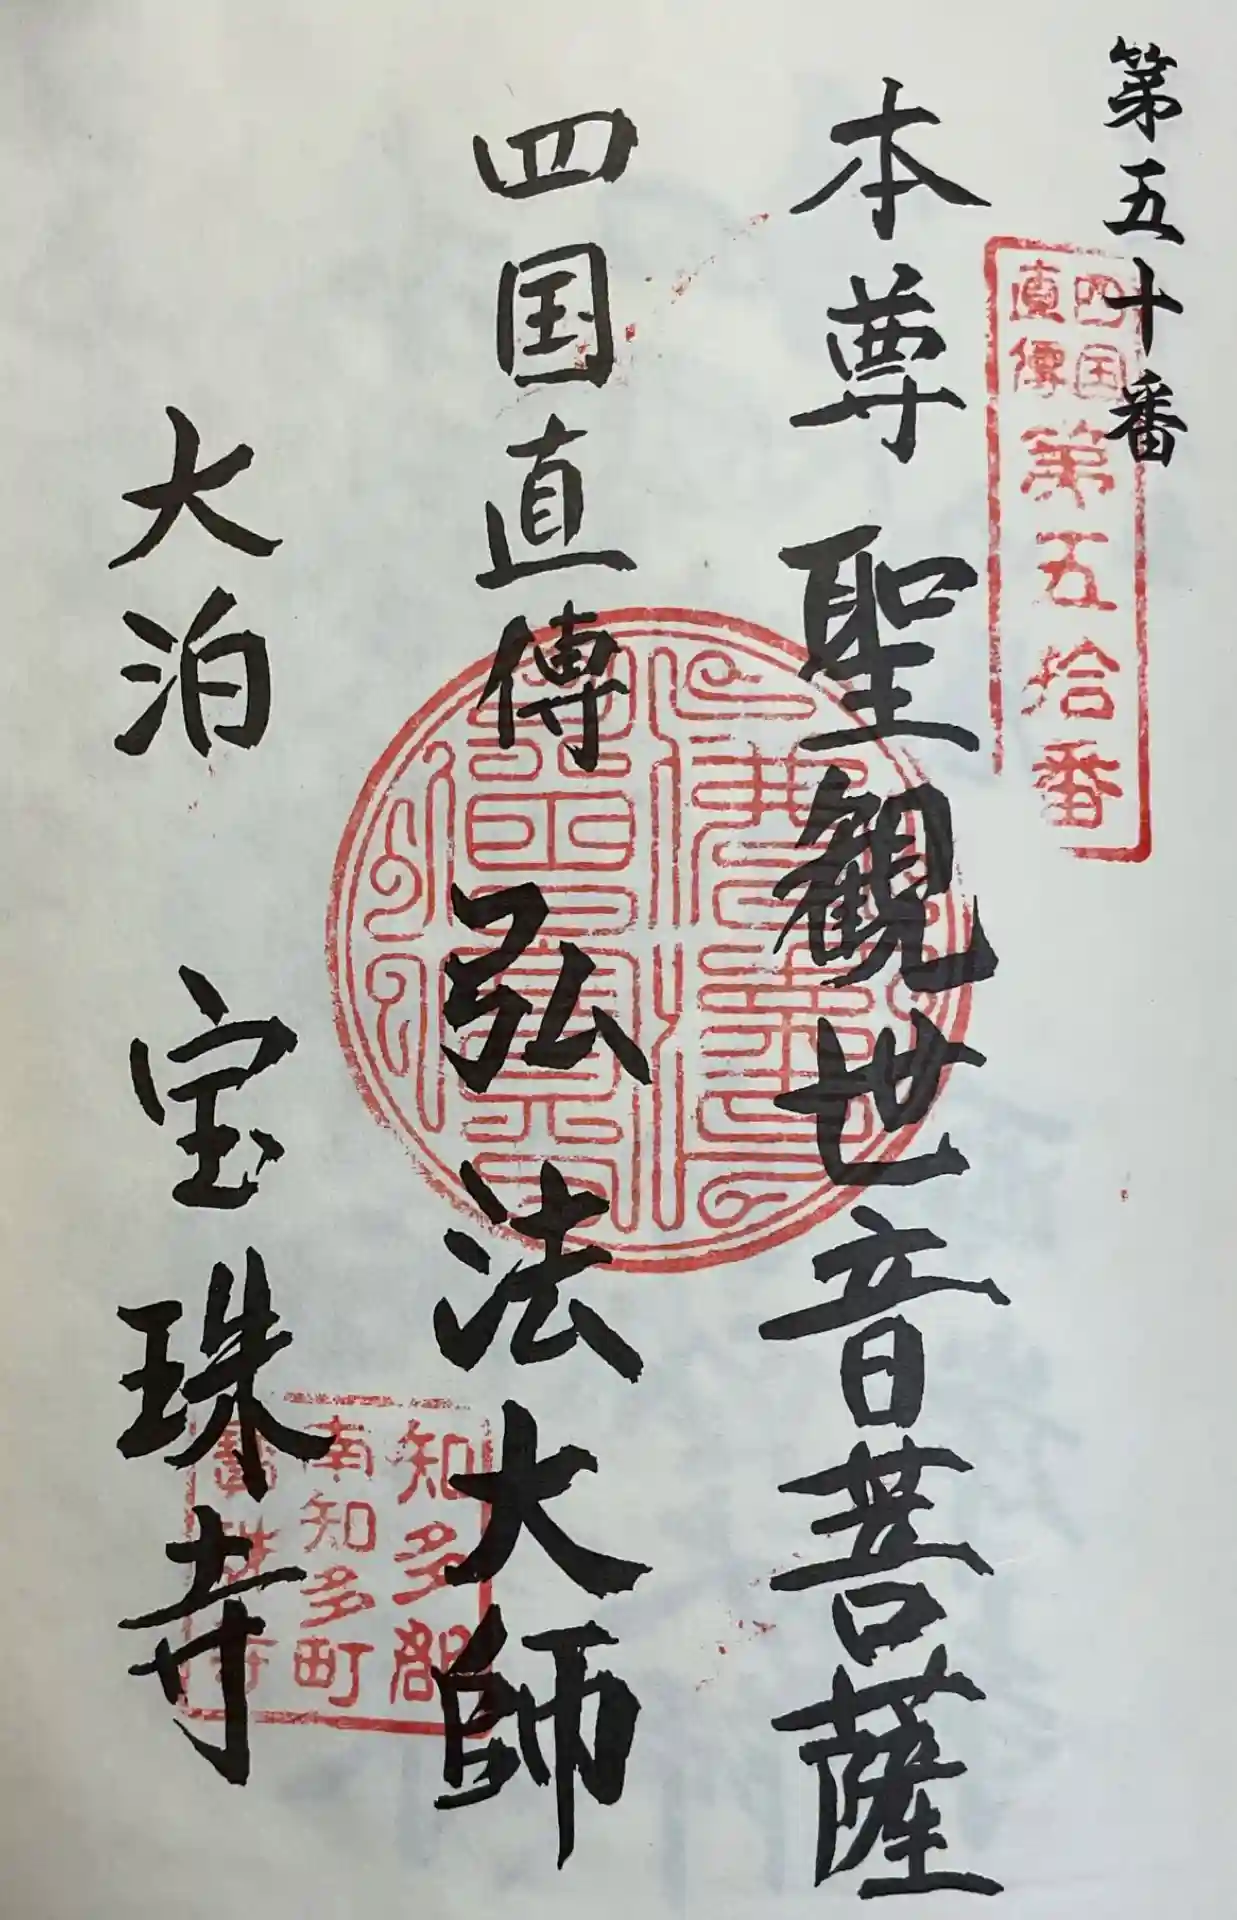 第五十番
四国
直傳
第五拾番
本尊 聖観世音菩薩
四国直傳 弘法大師
大泊 宝珠寺
知多郡
南知多町
寳珠寺